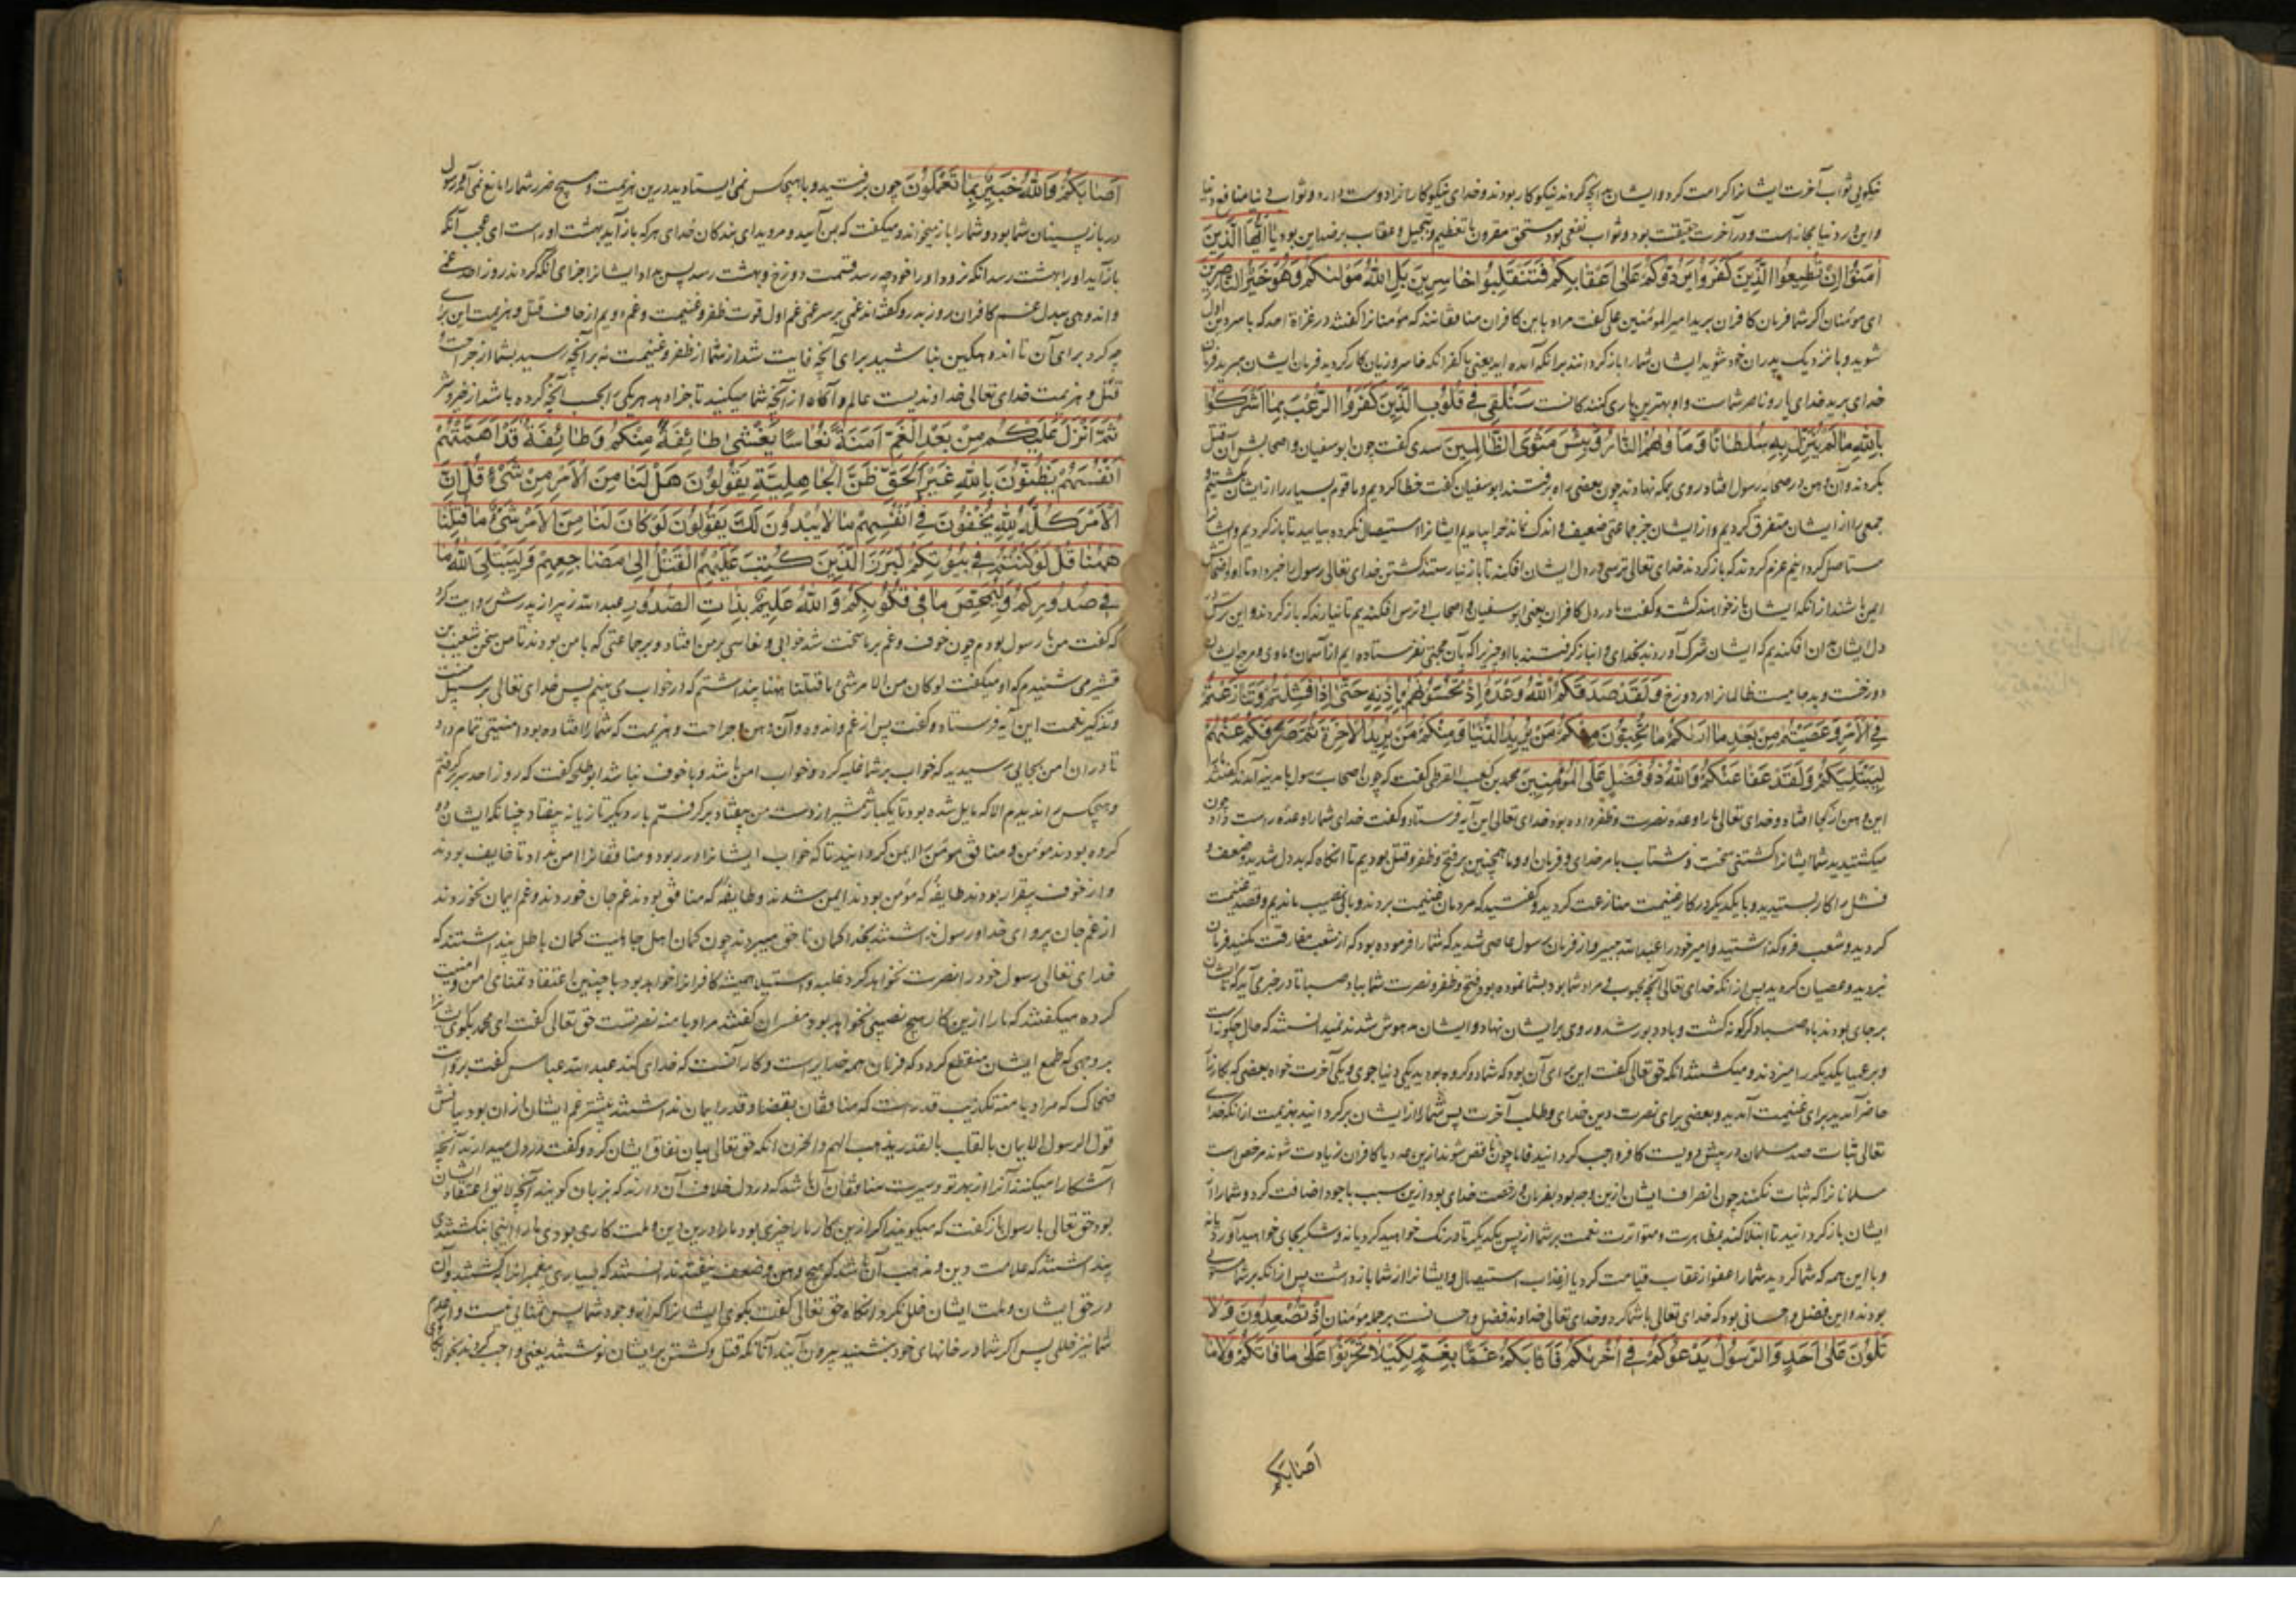 نیکویی ثواب آخرت ایشانرا کرامت کرد و ایشان بآنچه کردند نیکوکار بودند و خدای نیکوکارانرا دوست دارد و ثواب
و این در دنیا مجاز است و در آخرت حقیقت بود و ثواب نفعی بود مستحق مقرون با تعظیم و تبجیل و عقاب بر ضد این بود یٰا اَیُّهَا الَّذینَ
اٰمَنُوٓا اِنْ تُطیعُوا الَّذینَ کَفَرُوا یَرُدُّوکُمْ عَلیٰ اَعْقٰابِکُمْ فَتَنْقَلِبُوا خٰاسِرینَ بَلِ اللّٰهُ مَوْلٰیکُمْ وَهُوَ خَیْرُ النّٰاصِرینَ
ای مؤمنان اگر شما فرمان کافران برید امیر المؤمنین علی گفت مراد باین کافران منافقانند که مؤمنانرا گفتند در غزاة احد که با سر دین اول
شوید و با نزدیک پدران خود شوید ایشان شما را باز گردانند برانکه آمده اید یعنی با کفر انگه خاسر و زیان کار گردید فرمان ایشان مبرید فرمان
خدای برید خدای یار و ناصر شماست و او بهترین یاری کنندگانست سَنُلْقی فی قُلُوبِ الَّذینَ کَفَرُوا الرُّعْبَ بِمٰا اَشْرَکُوا
بِاللّٰهِ مٰا لَمْ یُنَزِّلْ بِهِ سُلْطٰانًا وَمَأْوٰیهُمُ النّٰارُ وَبِئْسَ مَثْوَی الظّٰالِمینَ سدی گفت چون ابوسفیان و اصحابش آن قتل
بکردند و آن وهن در صحابه رسول افتاد روی بمکه نهادند چون بعضی راه برفتند ابوسفیان گفت خطا کردیم و ما قوم بسیار را از ایشان بکشتیم
جمعی را از ایشان متفرق کردیم و از ایشان جز جماعتی ضعیف و اندک نماند چرا ایشانرا استیصال نکرده بیایید تا باز گردیم و ایشانرا
مستاصل گردانیم عزم کردند که باز گردند خدای تعالی ترسی در دل ایشان افکند تا باز نیارستند گشتن خدای تعالی رسول را خبر داد تا او و اصحابش
ایمن باشند از انکه ایشان باز خواهند گشت و گفت ما در دل کافران یعنی ابوسفیان و اصحاب او ترس افکندیم تا نیارند که باز گردند و این ترس
در دل ایشان بدان افکندیم که ایشان شرک آوردند بخدای و انباز گرفتند با او چیزیرا که بآن حجتی نفرستاده ایم از آسمان و ماوی و مرجع ایشان
دوزخست و بد جاییست ظالمانرا در دوزخ وَلَقَدْ صَدَقَکُمُ اللّٰهُ وَعْدَهُ اِذْ تَحُسُّونَهُمْ بِاِذْنِهِ حَتّٰی اِذٰا فَشِلْتُمْ وَتَنٰازَعْتُمْ
فِی الْاَمْرِ وَعَصَیْتُمْ مِنْ بَعْدِ مٰا اَرٰیکُمْ مٰا تُحِبُّونَ مِنْکُمْ مَنْ یُریدُ الدُّنْیٰا وَمِنْکُمْ مَنْ یُریدُ الْاٰخِرَةَ ثُمَّ صَرَفَکُمْ عَنْهُمْ
لِیَبْتَلِیَکُمْ وَلَقَدْ عَفٰا عَنْکُمْ وَاللّٰهُ ذُو فَضْلٍ عَلَی الْمُؤْمِنینَ محمد بن کعب القرظی گفت که چون اصحاب رسول با مدینه آمدند گفتند
این وهن از کجا افتاد و خدای تعالی ما را وعده نصرت و ظفر داده بود خدای تعالی این آیه فرستاد و گفت خدای شما را وعده راست داد چون
میکشتید شما ایشانرا کشتنی سخت و شتاب بامر خدای و فرمان او و ما همچنین بر فتح و ظفر و قتل بودیم تا انگاه که بددل شدید و ضعف و
فشل را کار بستید و با یکدیگر در کار غنیمت منازعت کردید و گفتید که مردمان غنیمت بردند و ما بی نصیب ماندیم و قصد غنیمت
کردید و شعب فرو گذاشتید و امیر خود را عبد الله جبیر و از فرمان رسول عاصی شدید که شما را فرموده بود که از شعب مفارقت مکنید فرمان
نبردید و عصیان کردید پس از انکه خدای تعالی آنچه محبوب و مراد شما بود بشما نموده بود و فتح و ظفر و نصرت شما بباد صبا تا در خبری آید که تا ایشان
بر جای بودند باد صبا دگرگونه گشت و باد دبور شد و روی بر ایشان نهاد و ایشان مدهوش شدند نمیدانستند که حال چگونه است
و بر عمیا یکدیگر را میزدند و میکشتند انگه حق تعالی گفت این برای آن بود که شما دو گروه بودید یکی دنیا جوی و یکی آخرت خواه بعضی که بکارزار
حاضر آمدید برای غنیمت آمدید و بعضی برای نصرت دین خدای و طلب آخرت پس شما را از ایشان برگردانید بهزیمت از انکه خدای
تعالی ثبات صد مسلمان در پیش دویست کافر واجب گردانید فاما چون ناقص شوند ازین حد یا کافران زیادت شوند مرخص است
مسلمانانرا که ثبات نکنند چون انصراف ایشان ازین وجه بود بفرمان و رخصت خدای بود ازین سبب با خود اضافت کرد و شما را از
ایشان باز گردانید تا ابتلا کند بمظاهرت و متواترت نعمت بر شما از پس یکدیگر تا درنگ خواهید کرد یا نه و شکر بجای خواهید آورد یا نه
و با این همه که شما کردید شما را عفو از عقاب قیامت کرد یا از عذاب استیصال و ایشانرا از شما بازداشت پس از انکه بر شما مستولی
بودند و این فضل و احسانی بود که خدای تعالی با شما کرد و خدای تعالی خداوند فضل و احسانست بر جمله مؤمنان اِذْ تُصْعِدُونَ وَلٰا
تَلْوُونَ عَلیٰ اَحَدٍ وَالرَّسُولُ یَدْعُوکُمْ فی اُخْرٰیکُمْ فَاَثٰابَکُمْ غَمًّا بِغَمٍّ لِکَیْلٰا تَحْزَنُوا عَلیٰ مٰا فٰاتَکُمْ وَلٰا مٰا
اَصٰابَکُمْ
اَصٰابَکُمْ وَاللّٰهُ خَبیرٌ بِمٰا تَعْمَلُونَ چون برفتید و با هیچکس نمی ایستادید درین هزیمت و هیچ ضرر شما را مانع نمی آمد و رسول
در باز پسینان شما بود و شما را باز میخواند و میگفت که بمن آیید و مروید ای بندگان خدای هر که باز آید بهشت او راست ای عجب آنکه
باز آید او را بهشت رسد انکه نرود او را خود چه رسد قسمت دوزخ و بهشت رسد پس داد ایشانرا جزای انکه کردند روز احد غمی
و اندوهی ببدل غم کافران روز بدر و گفته اند غمی بر سر غمی غم اول فوت ظفر و غنیمت و غم دویم ارجاف قتل و هزیمت این برای
چه کرد برای آن تا اندوهگین نباشید برای آنچه فایت شد از شما از ظفر و غنیمت نه بر آنچه رسید بشما از جراحت و
قتل و هزیمت خدای تعالی خداوندیست عالم و آگاه از آنچه شما میکنید تا جزا دهد هر یکی را بحسب آنچه کرده باشد از خیر و شر
ثُمَّ اَنْزَلَ عَلَیْکُمْ مِنْ بَعْدِ الْغَمِّ اَمَنَةً نُعٰاسًا یَغْشیٰ طٰائِفَةً مِنْکُمْ وَطٰائِفَةٌ قَدْ اَهَمَّتْهُمْ
اَنْفُسُهُمْ یَظُنُّونَ بِاللّٰهِ غَیْرَ الْحَقِّ ظَنَّ الْجٰاهِلِیَّةِ یَقُولُونَ هَلْ لَنٰا مِنَ الْاَمْرِ مِنْ شَیْءٍ قُلْ اِنَّ
الْاَمْرَ کُلَّهُ لِلّٰهِ یُخْفُونَ فی اَنْفُسِهِمْ مٰا لٰا یُبْدُونَ لَکَ یَقُولُونَ لَوْ کٰانَ لَنٰا مِنَ الْاَمْرِ شَیْءٌ مٰا قُتِلْنٰا
هٰهُنٰا قُلْ لَوْ کُنْتُمْ فی بُیُوتِکُمْ لَبَرَزَ الَّذینَ کُتِبَ عَلَیْهِمُ الْقَتْلُ اِلیٰ مَضٰاجِعِهِمْ وَلِیَبْتَلِیَ اللّٰهُ مٰا
فی صُدُورِکُمْ وَلِیُمَحِّصَ مٰا فی قُلُوبِکُمْ وَاللّٰهُ عَلیمٌ بِذٰاتِ الصُّدُورِ عبد الله زبیر از پدرش روایت کرد
که گفت من با رسول بودم چون خوف و غم بر ما سخت شد خوابی و نعاسی بر من افتاد و بر جماعتی که با من بودند تا من سخن معتب بن
قشیر می شنیدم که او میگفت لو کان من الامر شیء ما قتلنا ههنا پنداشتم که در خواب می بینم پس خدای تعالی بر سبیل منت
و تذکیر نعمت این آیه فرستاد و گفت پس از غم و اندوه و آن وهن و جراحت و هزیمت که شما را افتاده بود امنیتی تمام داد
تا در ان امن بجایی رسیدید که خواب بر شما غلبه کرد و خواب امن باشد و با خوف نباشد ابو طلحه گفت که روز احد سر بر گرفتم
و هیچکس را ندیدم الا که مایل شده بود تا یکبار شمشیر از دست من بیفتاد بر گرفتم بار دیگر تازیانه بیفتاد چنانکه ایشان دو
گروه بودند مؤمن و منافق مؤمن را ایمن گردانید تا که خواب ایشانرا در ربود و منافقانرا امن نداد تا خایف بودند
و از خوف بیقرار بودند طایفه که مؤمن بودند ایمن شدند و طایفه که منافق بودند غم جان خوردند و غم ایمان نخوردند
از غم جان پروای خدا و رسول نداشتند بخدا گمان ناحق میبردند چون گمان اهل جاهلیت گمان باطل پنداشتند که
خدای تعالی رسول خود را نصرت نخواهد کرد غلبه و استیلا همیشه کافرانرا خواهد بود با چنین اعتقاد تمنای امن و امنیت
کرده میگفتند که ما را ازین کار هیچ نصیبی نخواهد بود مفسران گفتند مراد بامر نصرتست حق تعالی گفت ای محمد بگوی ایشانرا
بر وجهی که طمع ایشان منقطع گردد که فرمان همه خدایراست و کار آنست که خدای کند عبد الله عباس گفت بروایت
ضحاک که مراد بامر تکذیب قدر است که منافقان بقضا و قدر ایمان نداشتند بیشتر غم ایشان از ان بود بیانش
قول الرسول الایمان بالقلب بالقدر یذهب الهم و الحزن انگه حق تعالی بیان نفاق ایشان کرد و گفت در دل میدارند آنچه
آشکارا میکنند آنرا از بهر تو و سیرت منافقان آن باشد که در دل خلاف آن دارند که بزبان گویند آنچه لایق اعتقاد ایشان
بود حق تعالی با رسول باز گفت که میگویند اگر ازین کار ما را چیزی بودی ما را درین دین و ملت کاری بودی ما را اینجا نکشتندی
پنداشتند که علامت دین و مذهب آن باشد که هیچ وهن و ضعف نیفتد ندانستند که بسیاری پیغمبرانرا بکشتند و آن
در حق ایشان و ملت ایشان خلل نکرد انگاه حق تعالی گفت بگوی ایشانرا که از وجود شما پس منفعتی نیست و از عدم
شما نیز خللی پس اگر شما در خانهای خود بنشینید بیرون آیند آنانکه قتل و کشتن بر ایشان نوشتند یعنی واجب کردند